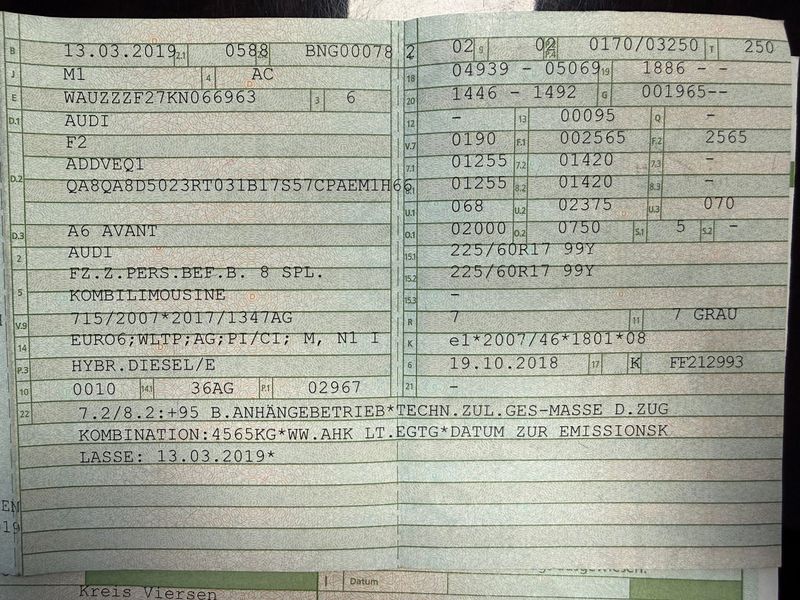 B 13.03.2019 2.1 0588 BNG00078 2
J M1 4 AC
E WAUZZZF27KN066963 3 6
D.1 AUDI
F2
D.2 ADDVEQ1
QA8QA8D5023RT031B17S57CPAEM1H6
D.3 A6 AVANT
2 AUDI
FZ.Z.PERS.BEF.B. 8 SPL.
5 KOMBILIMOUSINE
V.9 715/2007*2017/1347AG
14 EURO6;WLTP;AG;PI/CI; M, N1 I
P.3 HYBR.DIESEL/E
10 0010 14.1 36AG P.1 02967
02 9 02 P.4 0170/03250 T 250
18 04939 - 05069 19 1886 - -
20 1446 - 1492 G 001965--
12 - 13 00095 Q -
V.7 0190 F.1 002565 F.2 2565
7.1 01255 7.2 01420 7.3 -
8.1 01255 8.2 01420 8.3 -
U.1 068 U.2 02375 U.3 070
O.1 02000 O.2 0750 S.1 5 S.2 -
15.1 225/60R17 99Y
15.2 225/60R17 99Y
15.3 -
R 7 11 7 GRAU
K e1*2007/46*1801*08
6 19.10.2018 17 K FF212993
21 -
22 7.2/8.2:+95 B.ANHÄNGEBETRIEB*TECHN.ZUL.GES-MASSE D.ZUG
KOMBINATION:4565KG*WW.AHK LT.EGTG*DATUM ZUR EMISSIONSK
LASSE: 13.03.2019*
Datum
Kreis Viersen